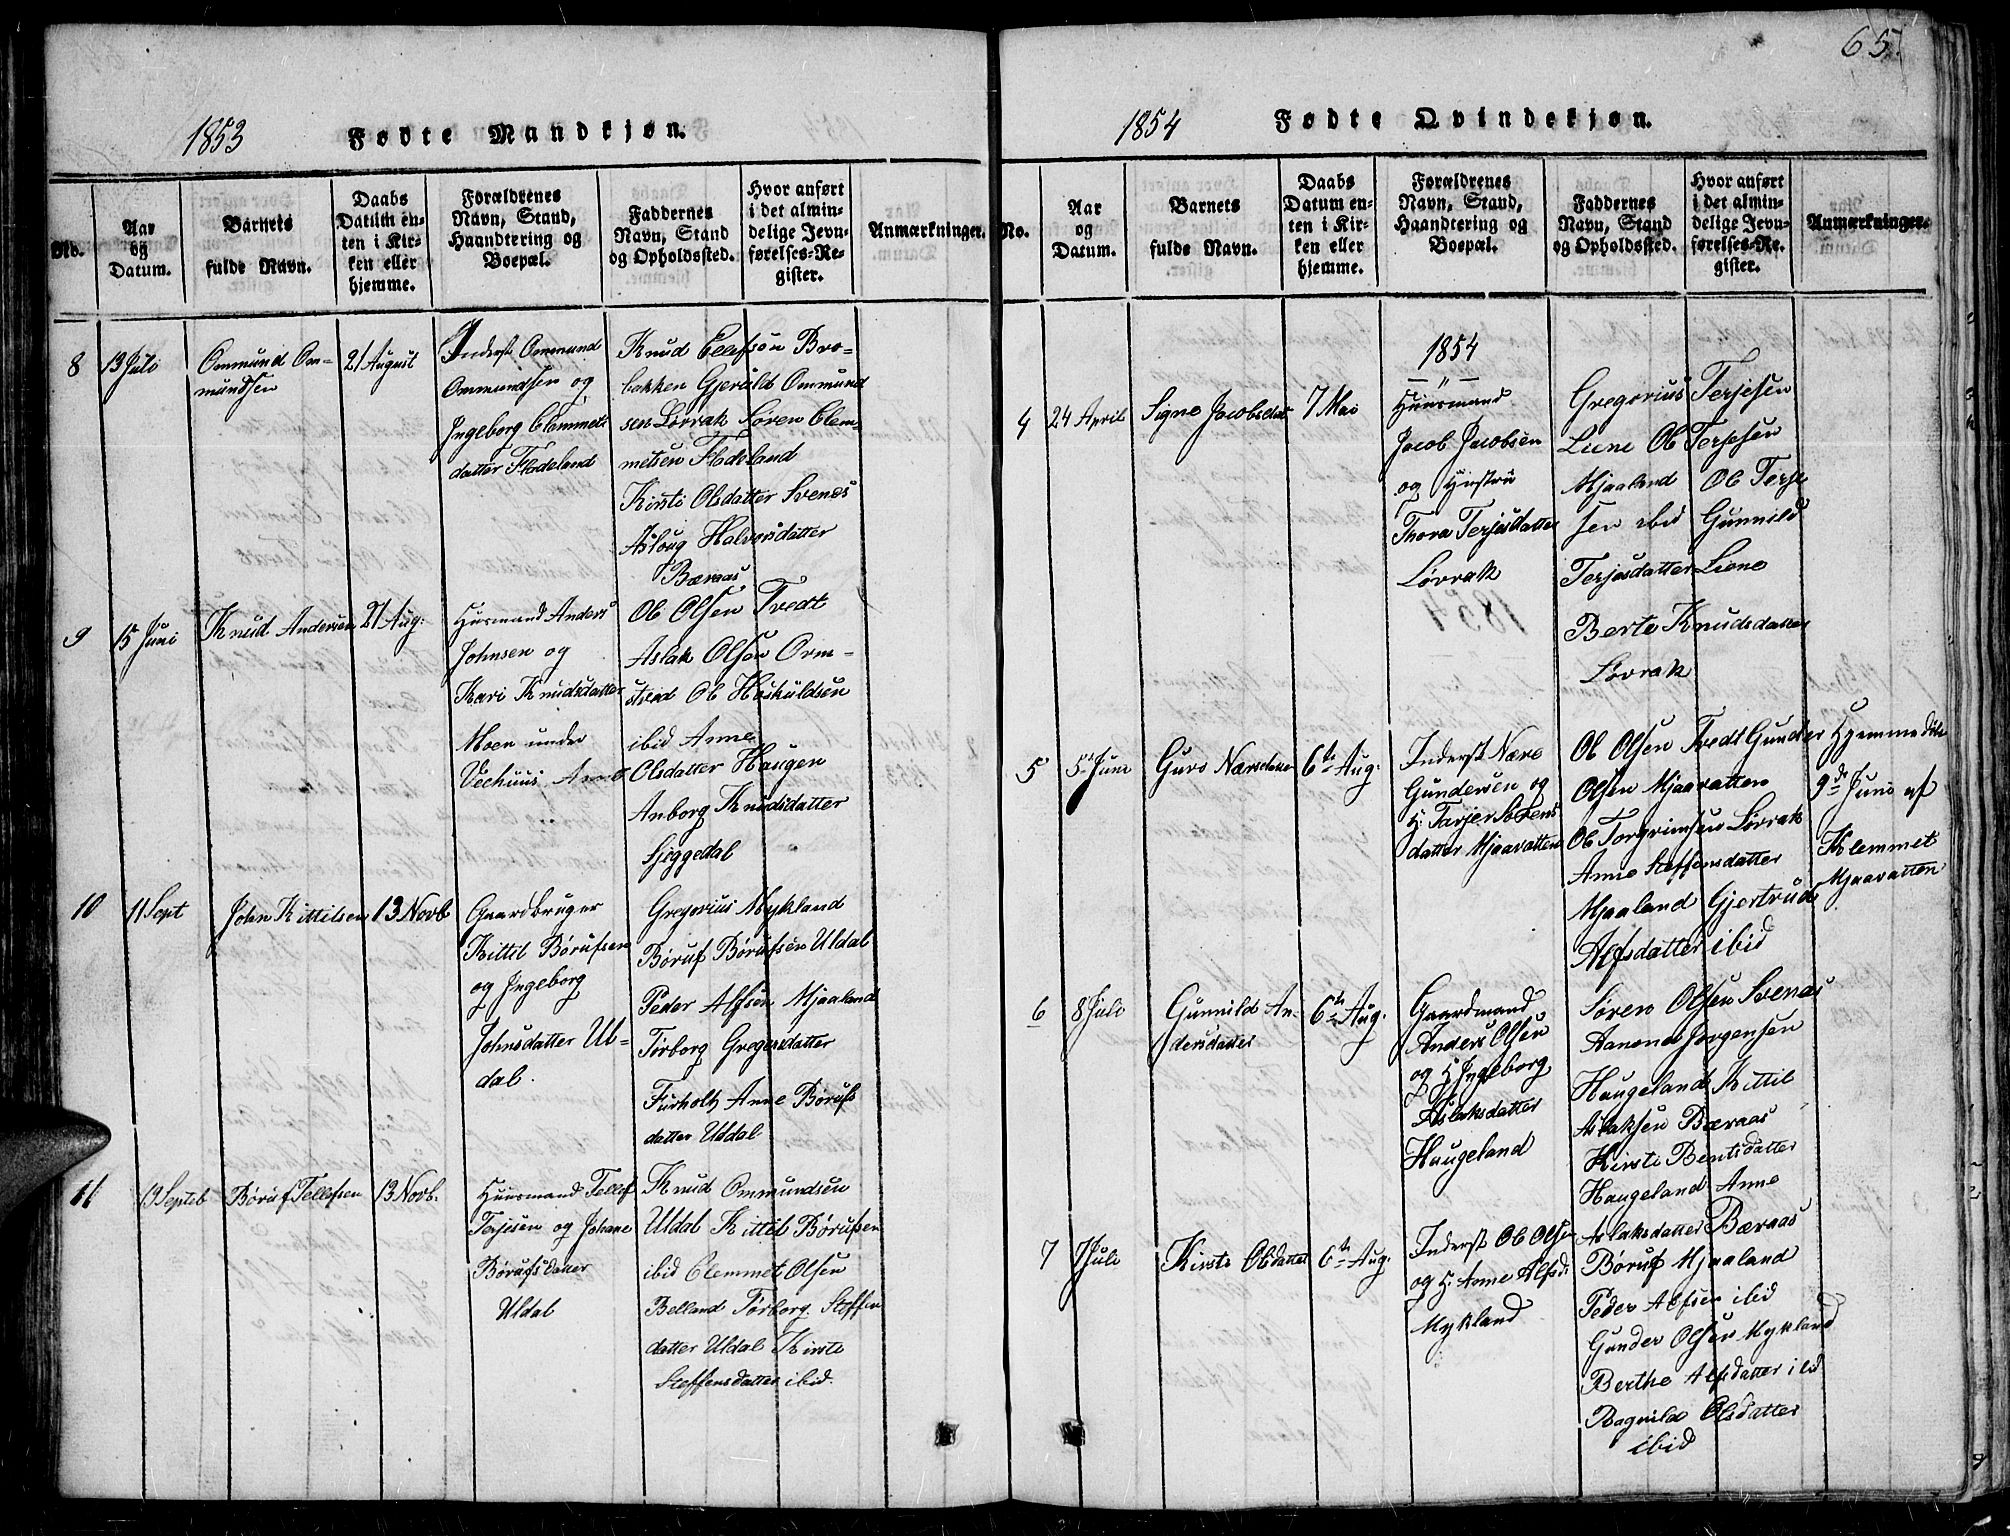 1853
Fødte Mandkjøn.
No.
Aar
og
Datum.
Barnets
fulde Navn.
Daabs
Datum en-
ten i Kir-
ken eller
hjemme.
Forældrenes
Navn, Stand,
Haandtering og
Boepæl.
Faddernes
Navn, Stand
og Opholdssted.
Hvor anført
i det almin-
delige Jevn-
førelses-Re-
gister.
Anmærkninger.
8
13 Juli
Ommund Om-
mundsen
21 August
Inderst Ommund
Ommundsen og
Ingeborg Clemmets
datter Flodeland
Knud Ellefsøn Bro-
bakken Gjeruld Ommund
sen Løvrak Søren Clem-
metsen Flodeland
Kirsti Olsdatter Svenes
Asloug Halvorsdatter
Bæraas
9
15 Juni
Knud Andersen
21 Aug:
Huusmand Anders
Johnsen og
Kari Knudsdatter
Moen under
Veehuus
Ol Olsen Tvedt
Aslak Olsen Orm-
Ol Høskuldsen
ibid Anne
Olsdatter Haugen
Anborg Knudsdatter
Sjeggedal
10
11 Sept
John Kittilsen
13 Novb
Gaardbruger
Kittil Børufsen
og Ingeborg
Johnsdatter Ul-
dal.
Gregorius Mykland
Børuf Børufsen Uldal
Peder Alfsen Mjaaland
Torborg Gregersdatter
Furholt Anne Børufs
datter Uldal
11
19 Septeb
Børuf Tellefsen
13 Novb.
Huusmand Tellef
Terjesen og Johane
Børufsdatter
Uldal
Knud Ommundsen
Uldal Kittil Børufsen
ibid Clemmet Olsen
Belland Torborg Steffen
datter Uldal Kirste
Steffensdatter ibid.
65.
1854
Fødte Qvindekjøn.
No.
Aar
og
Datum.
Barnets
fulde Navn.
Daabs
Datum en-
ten i Kir-
ken eller
hjemme.
Forældrenes
Navn, Stand,
Haandtering og
Boepæl.
Faddernes
Navn, Stand
og Opholdssted.
Hvor anført
i det almin-
delige Jevn-
førelses-Re-
gister.
Anmærkninger.
1854
4
24 April
Signe Jacobsdat
7 Mai
Huusmand
Jacob Jacobsen
og Hustru
Thora Terjesdatter
Løvrak
Gregorius Terjesen
Liene Ol Terjesen
Mjaaland Ol Terje
sen ibid Gunnild
Terjesdatter Liene
Berte Knudsdatter
Løvrak
5
5 Juni
Guro Næresdatter
6te Aug:
Inderst Nære
Gundersen og
H: Tarjer Sørens
datter Mjaavatten
Ol Olsen Tvedt Gunder
Olsen Mjaavatten
Ol Torgrimsen Løvrak
Anne Steffensdatter
Mjaaland Gjertrud
Alfsdatter ibid
Hjemmedøbt
9de Juni af
Klemmet
Mjaavatten
6
8 Juli
Gunnild An-
dersdatter
6te Aug.
Gaardmand
Anders Olsen
og H Ingeborg
Aslaksdatter
Haugeland
Søren Olsen Svenas
Aanen Jørgensen
Haugeland Kittil
Aslaksen Bæraas
Kirsti Bentsdatter
Haugeland Anne
Aslaksdatter Bæraas
7
7 Juli
Kirsti Olsdatter
6te Aug.
Inderst Ol Olsen
og H: Anne Alfsd:
Mykland
Børuf Mjaaland
Peder Alfsen ibid
Gunder Olsen Mykland
Berthe Alfsdatter ibid
Ragnild Olsdatter
ibid